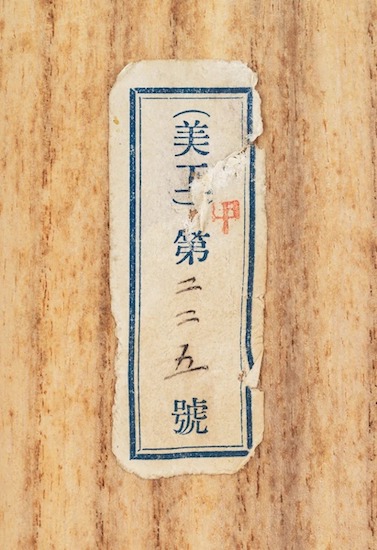 (美工)第二二五號
甲